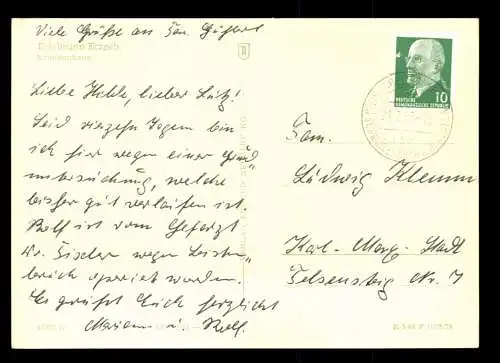 Viele Grüße an Fam. Gühlert
Erlabrunn Erzgeb.
Krankenhaus
Liebe Hilde, lieber Lutz!
Seid vierzehn Tagen bin
ich hier wegen einer Grund-
untersuchung, welche
bisher gut verlaufen ist.
Rolf ist vom Chefarzt
Dr. Fischer wegen Leisten-
bruch operiert worden.
Es grüßt Euch herzlichst
Mariann u. Rolf.
10
DEUTSCHE
DEMOKRATISCHE REPUBLIK
Fam.
Ludwig Klemm
Karl-Marx-Stadt
Felsensteig Nr. 7